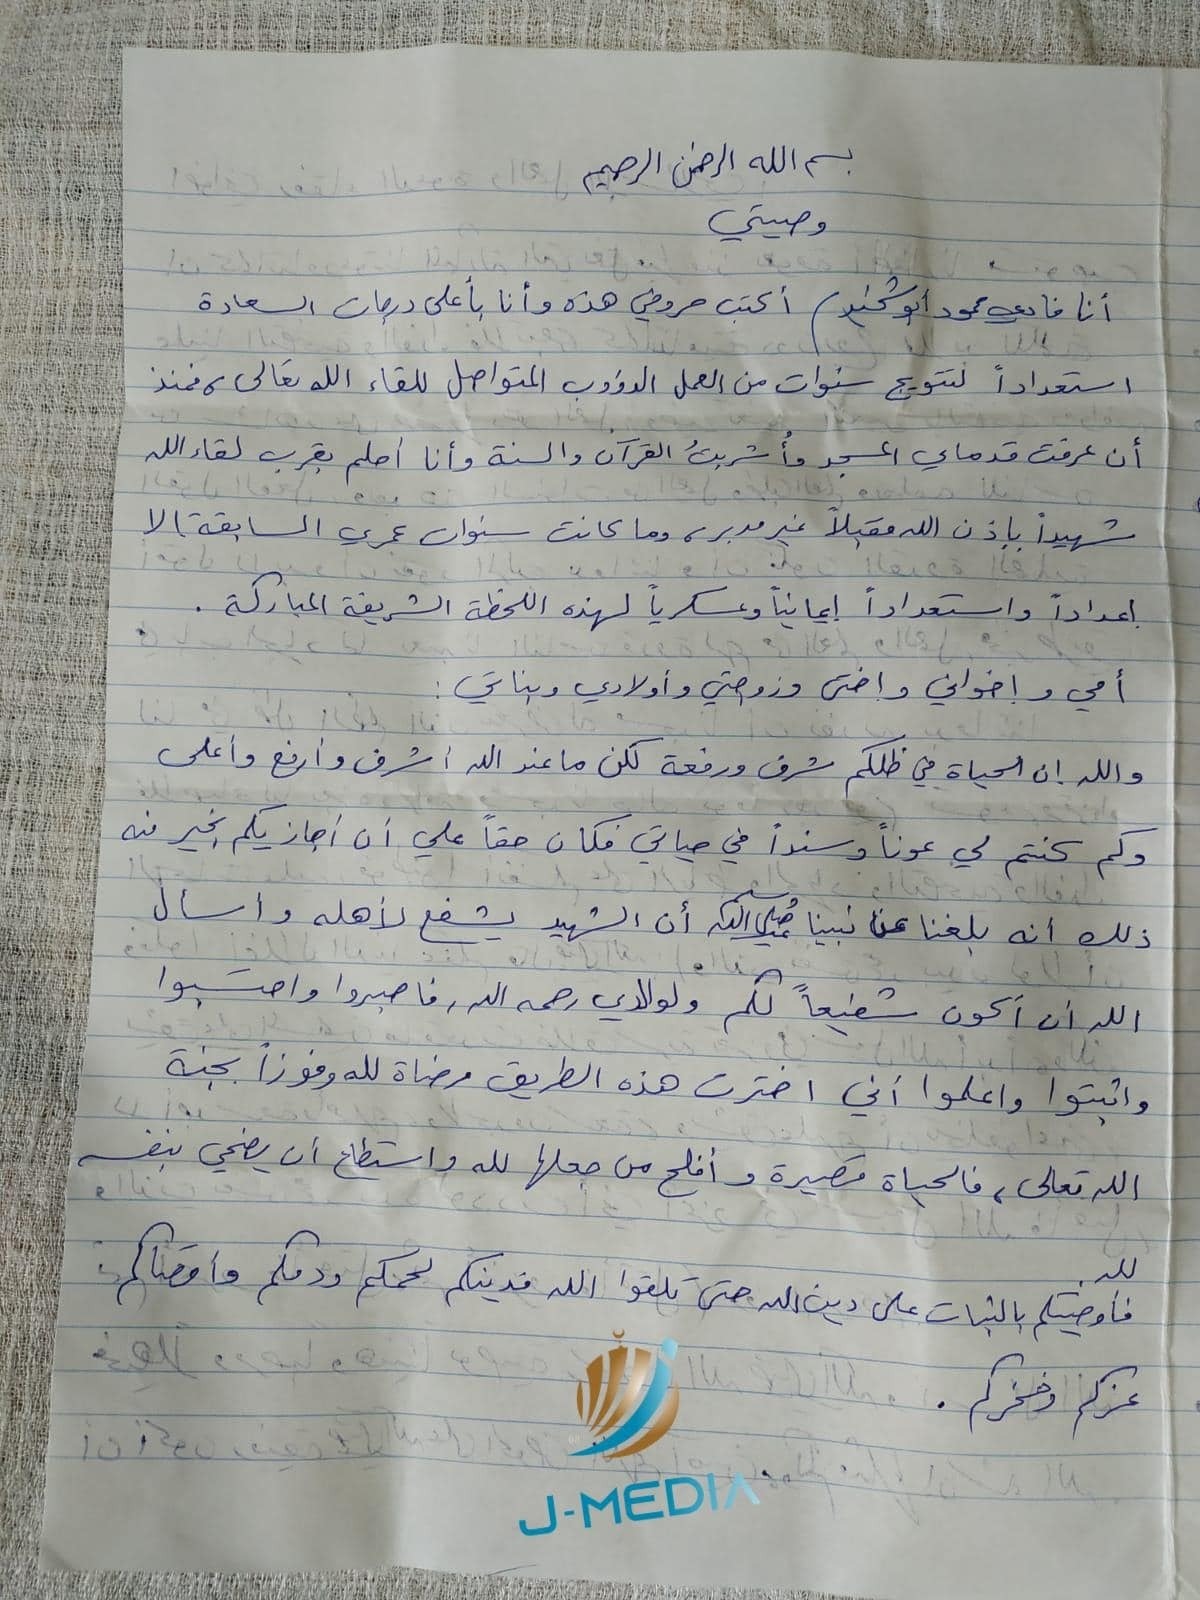 بسم الله الرحمن الرحيم
وصيتي
أنا فادي محمود أبو شخيدم / أكتب حروفي هذه وأنا بأعلى درجات السعادة
استعداداً لتتويج سنوات من العمل الدؤوب المتواصل للقاء الله تعالى، فمنذ
أن عرفت قدماي المسجد وأُشربتُ القرآن والسنة وأنا أحلم بقرب لقاء الله
شهيداً بإذن الله مقبلاً غير مدبر، وما كانت سنوات عمري السابقة إلا
إعداداً واستعداداً إيمانياً وعسكرياً لهذه اللحظة الشريفة المباركة .
أمي و إخواني و إختى و زوجتي و أولادي وبناتي :
والله إن الحياة في ظلكم شرف ورفعة لكن ما عند الله أشرف وأرفع وأعلى
وكم كنتم لي عوناً وسنداً في حياتي فكان حقاً علي أن أجازيكم بخير منه
ذلك أنه بلغنا عن نبينا صلى الله عليه وسلم أن الشهيد يشفع لأهله وأسأل
الله أن أكون شفيعاً لكم ولوالدي رحمه الله، فاصبروا واحتسبوا
واثبتوا واعلموا أني اخترت هذه الطريق مرضاة لله وفوزاً بجنة
الله تعالى، فالحياة قصيرة وأفلح من جعلها لله واستطاع أن يضحي بنفسه
لله.
فأوصيتكم بالثبات على دين الله حتى تلقوا الله فدينكم لحمكم ودمكم وأقصاكم
عزكم وفخركم .
J-MEDIA